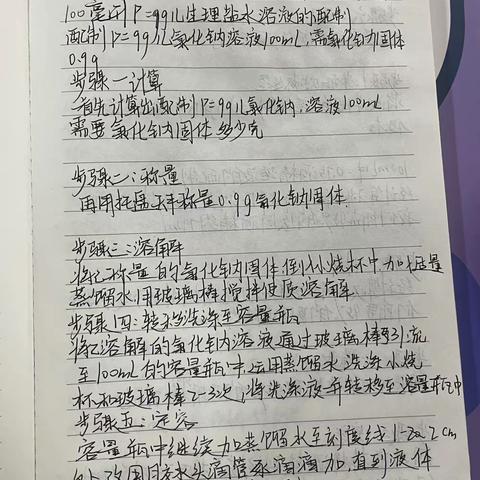 100毫升P=9g/L生理盐水溶液的配制
配制P=9g/L氯化钠溶液100mL,需氯化钠固体
0.9g
步骤一计算
首先计算出配制P=9g/L氯化钠,溶液100mL
需要氯化钠固体多少克
步骤二:称量
再用托盘天平称量0.9g氯化钠固体
步骤三:溶解
将已称量的氯化钠固体倒小烧杯中,加适量
蒸馏水,用玻璃棒搅拌使质溶解
步骤四:转移洗涤至容量瓶
将溶解的氯化钠溶液通过玻璃棒引流
至100mL的容量瓶中,运用蒸馏水洗涤小烧
杯和玻璃棒2-3次,将洗涤液并转移至容量瓶中
步骤五:定容
容量瓶中继续加蒸馏水至刻度线1-2cm
改用胶头滴管逐滴滴加,直到液体